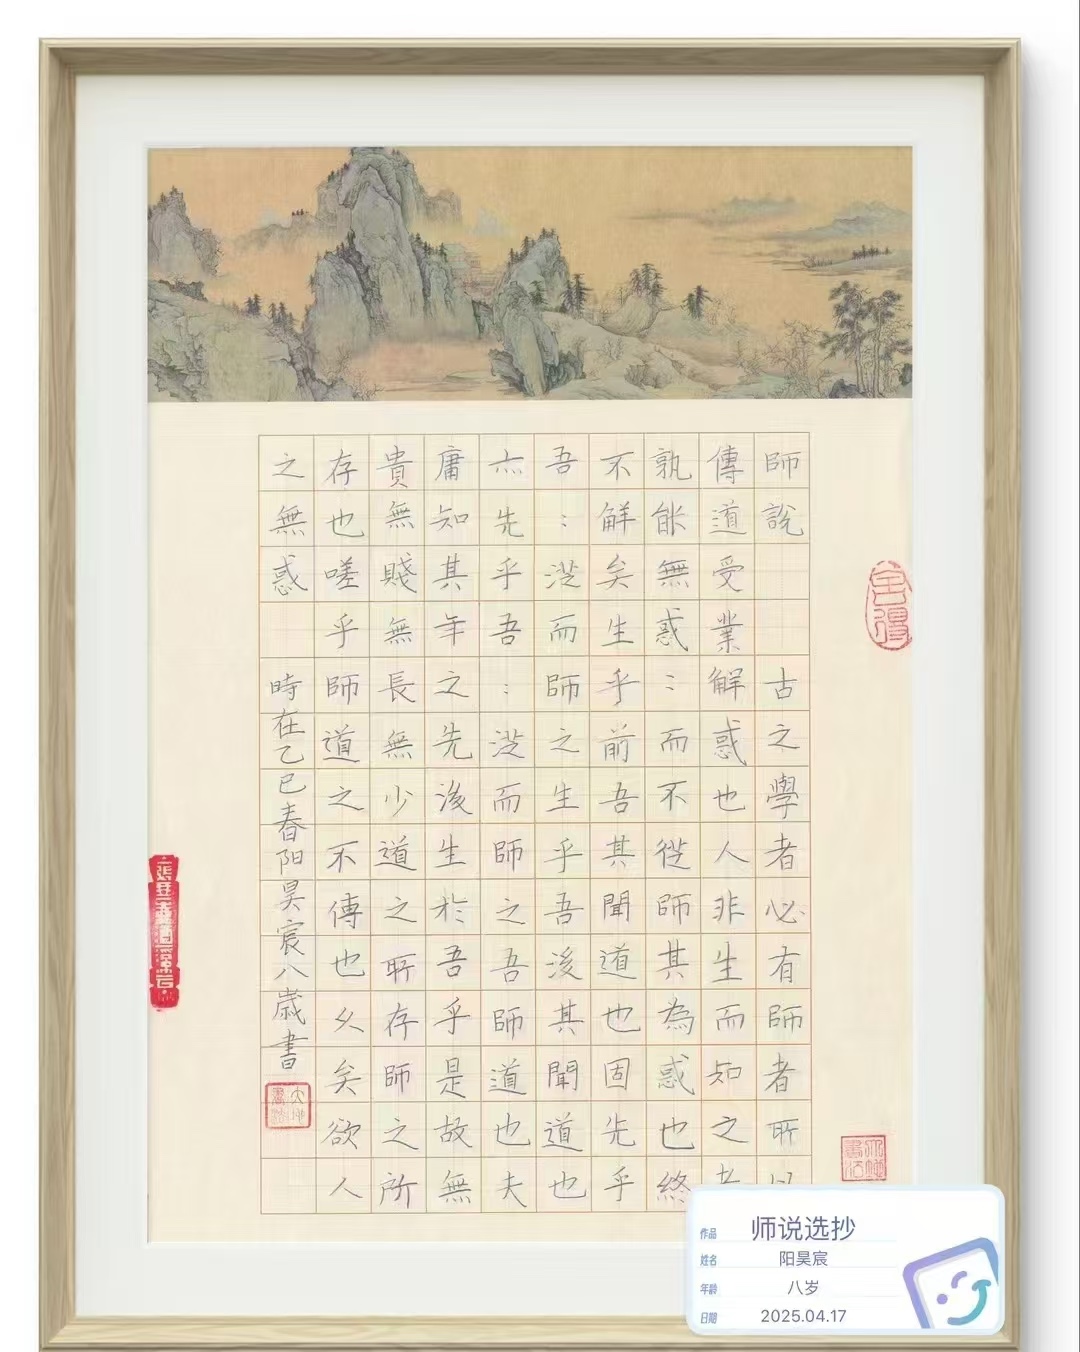 師說 古之學者必有師者所以
傳道受業解惑也人非生而知之者
孰能無惑:而不從師其為惑也終
不解矣生乎前吾其聞道也固先乎
吾:從而師之生乎吾後其聞道也
亦先乎吾:從而師之吾師道也夫
庸知其年之先後生於吾乎是故無
貴無賤無長無少道之所存師之所
存也嗟乎師道之不傳也久矣欲人
之無惑 時在乙巳春阳昊宸八歲書
舍得
作品 师说选抄
姓名 阳昊宸
年龄 八岁
日期 2025.04.17